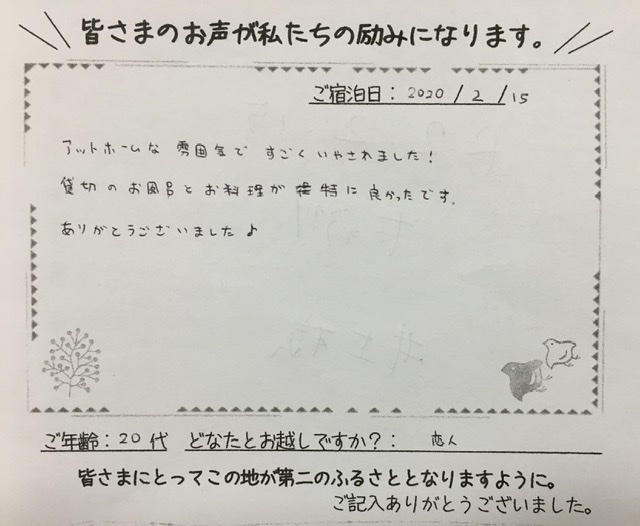 皆さまのお声が私たちの励みになります。
ご宿泊日：2020/2/15
アットホームな雰囲気で すごくいやされました！
貸切のお風呂とお料理が 特に良かったです。
ありがとうございました♪
ご年齢：20代 どなたとお越しですか？： 恋人
皆さまにとってこの地が第二のふるさととなりますように。
ご記入ありがとうございました。